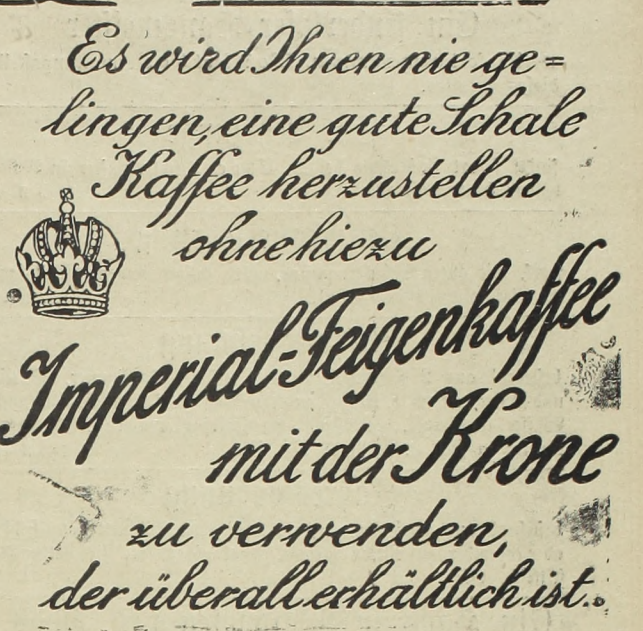 Es wird Ihnen nie ge=
lingen, eine gute Schale
Kaffee herzustellen
ohne hiezu
Imperial-Feigenkaffee
mit der Krone
zu verwenden,
der überall erhältlich ist.